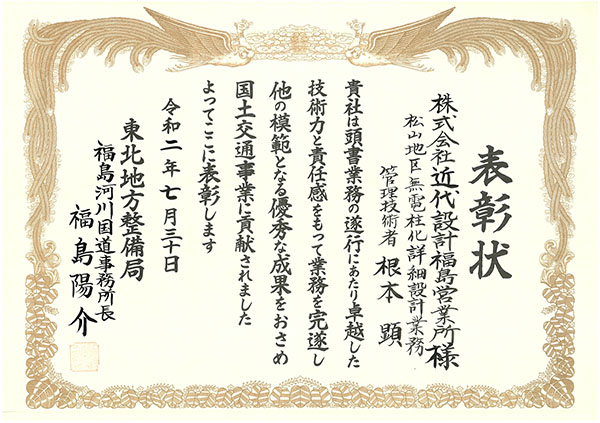 表彰状
株式会社近代設計福島営業所様
松山地区無電柱化詳細設計業務
管理技術者 根本 顕
貴社は頭書業務の遂行にあたり卓越した
技術力と責任感をもって業務を完遂し
他の模範となる優秀な成果をおさめ
国土交通事業に貢献されました
よってここに表彰します
令和二年七月三十日
東北地方整備局
福島河川国道事務所長
福島陽介